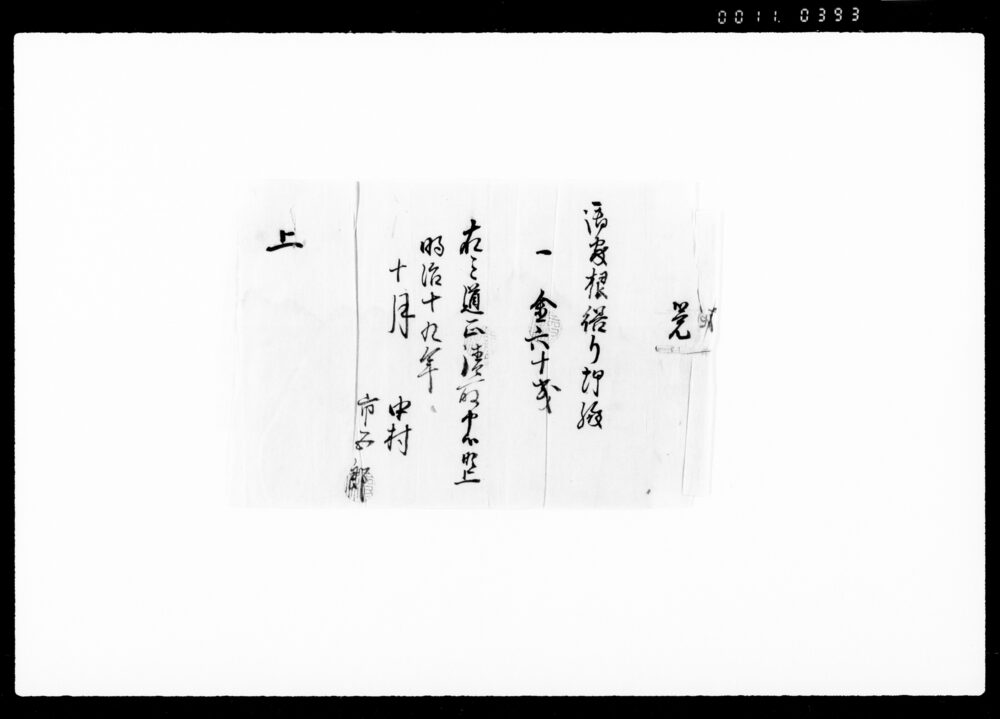 0011. 0393
覚
屋根繕り
一 金六十銭
右之通正ニ請取申候也
明治十九年
十月
中村
市五郎
上